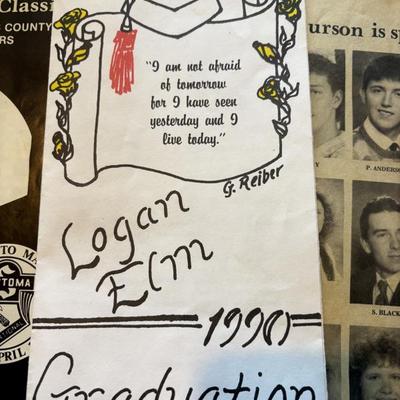 Classi
COUNTY
RS
urson is sp
"I am not afraid
of tomorrow
for I have seen
yesterday and I
live today."
G. Reiber
Y
P. ANDERS
Logan
Elm
S. BLACK
TO MA
TOMA
APRIL
1990
Graduation